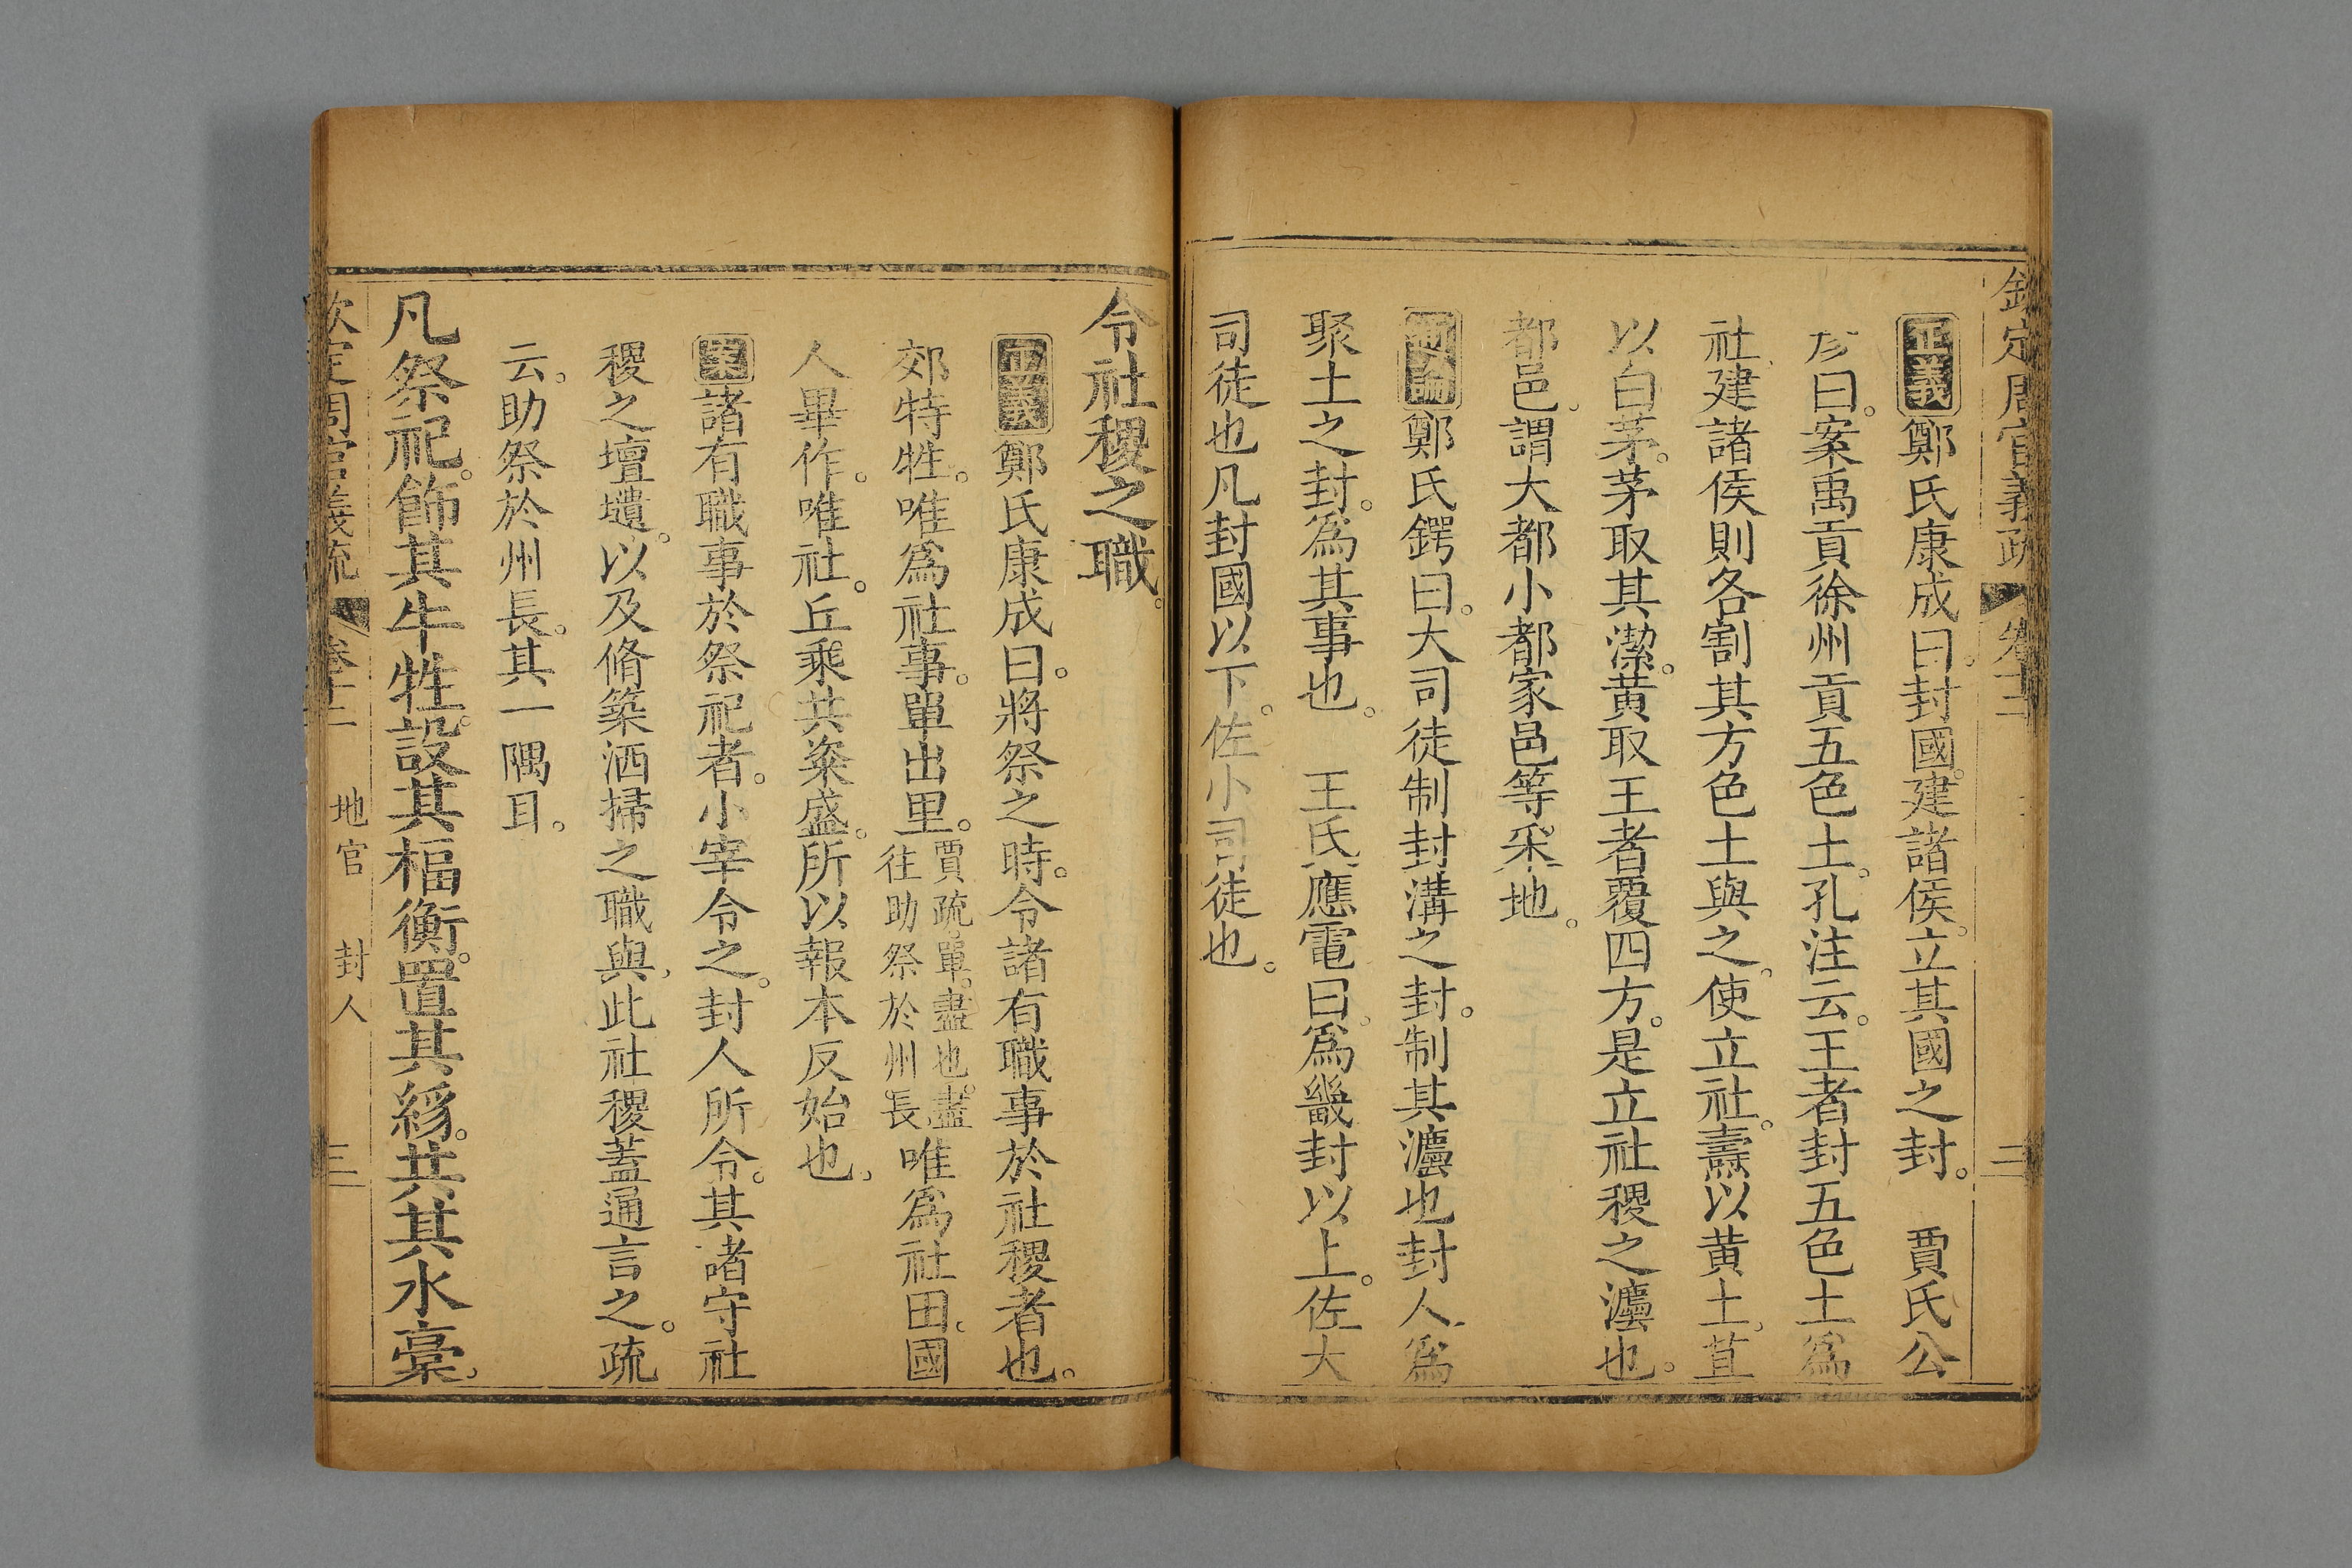 欽定周官義疏 卷十二 三
正義鄭氏康成曰。封國。建諸侯。立其國之封。 賈氏公
彥曰。案禹貢徐州貢五色土。孔注云。王者封五色土爲
社。建諸侯則各割其方色土與之。使立社。燾以黄土。苴
以白茅。茅取其潔。黄取王者覆四方。是立社稷之灋也。
都邑。謂大都小都家邑等采地。
通論鄭氏鍔曰。大司徒制封溝之封。制其灋也封人爲
聚土之封。爲其事也。 王氏應電曰。爲畿封以上。佐大
司徒也凡封國以下。佐小司徒也。
令社稷之職。
正義鄭氏康成曰。將祭之時。令諸有職事於社稷者也。
郊特牲。唯爲社事。單出里。賈疏。單。盡也。盡往助祭於州長。唯爲社田。國
人畢作。唯社。丘乘共粢盛。所以報本反始也。
案諸有職事於祭祀者。小宰令之。封人所令。其諸守社
稷之壇壝。以及脩築洒掃之職與。此社稷蓋通言之。疏
云。助祭於州長。其一隅耳。
凡祭祀。飾其牛牲。設其楅衡。置其絼。共其水稾。
欽定周官義疏 卷十二 地官 封人 三